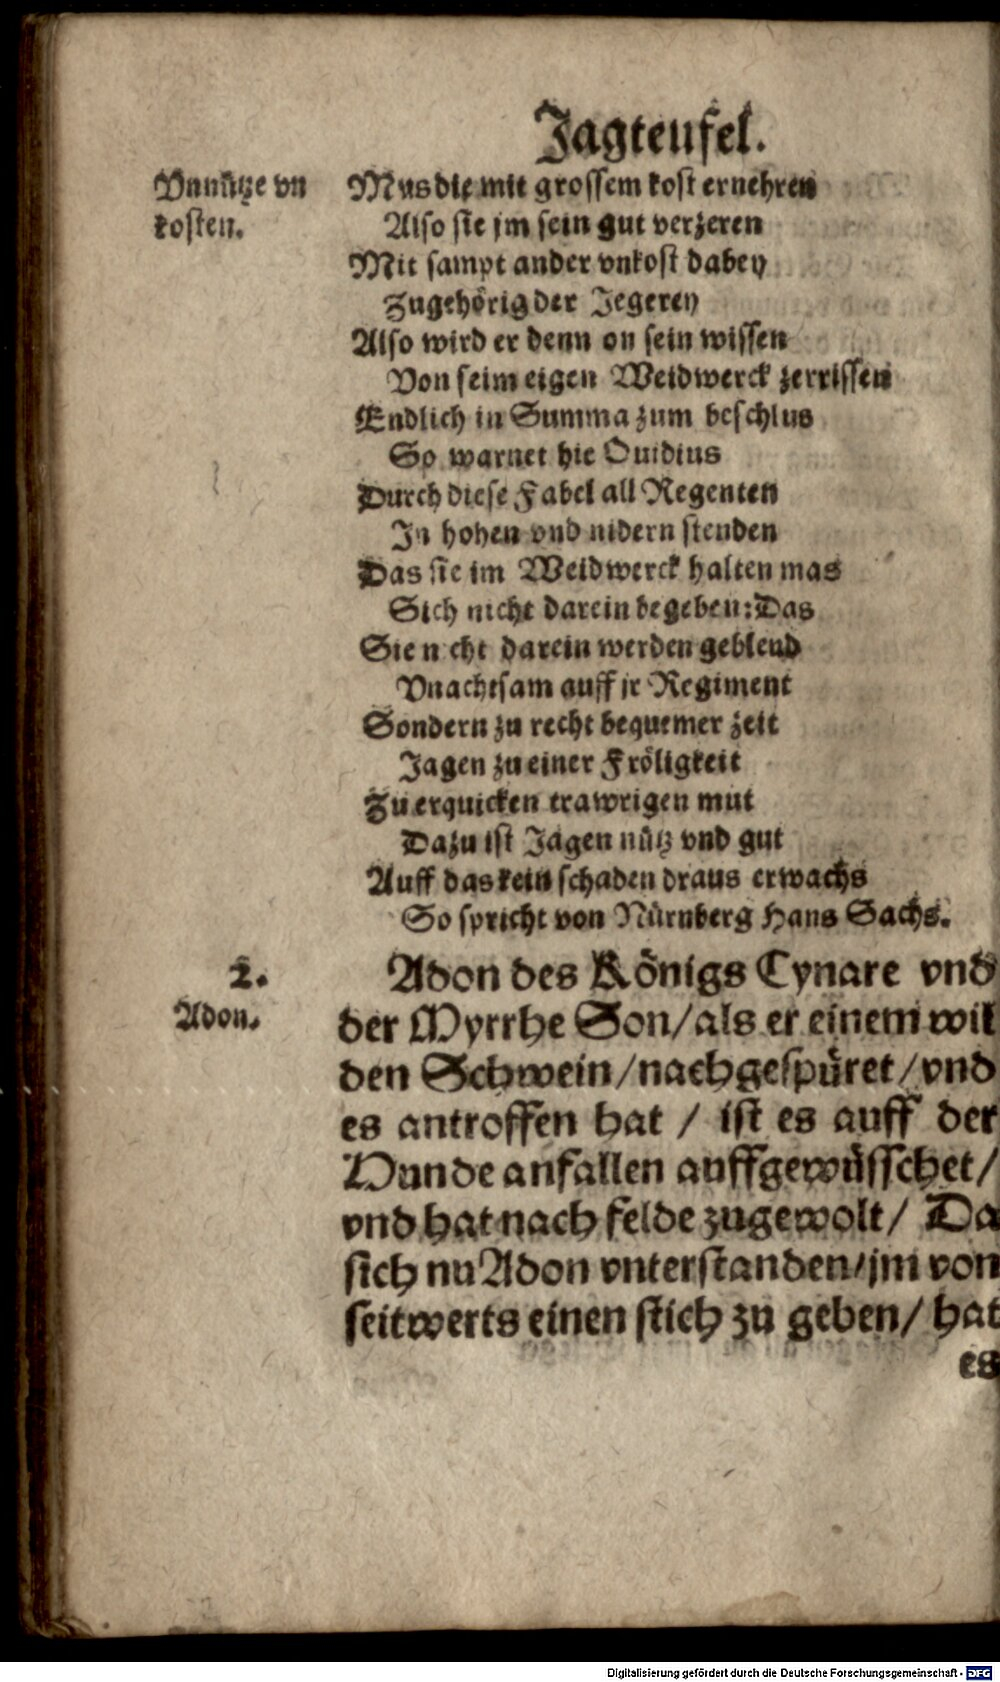 Jagteufel.
Vnnütze vn
kosten.
Mus die mit grossem kost ernehren
Also sie jm sein gut verzeren
Mit sampt ander vnkost dabey
Zugehörig der Jegerey
Also wird er denn on sein wissen
Von seim eigen Weidwerck zerrissen
Endlich in Summa zum beschlus
So warnet hie Ouidius
Durch diese Fabel all Regenten
In hohen vnd nidern stenden
Das sie im Weidwerck halten mas
Sich nicht darein begeben: Das
Sie n cht darein werden geblend
Vnachtsam auff jr Regiment
Sondern zu recht bequemer zeit
Jagen zu einer Fröligkeit
Zu erquicken trawrigen mut
Dazu ist Jagen nütz vnd gut
Auff das kein schaden draus erwachs
So spricht von Nürnberg Hans Sachs.
2.
Adon.
Adon des Königs Cynare vnd
der Myrrhe Son/als er einem wil
den Schwein/nachgespüret/vnd
es antroffen hat / ist es auff der
Hunde anfallen auffgewüsschet/
vnd hat nach felde zugewolt/ Da
sich nu Adon vnterstanden/jm von
seitwerts einen stich zu geben/ hat
es
Digitalisierung gefördert durch die Deutsche Forschungsgemeinschaft - DFG